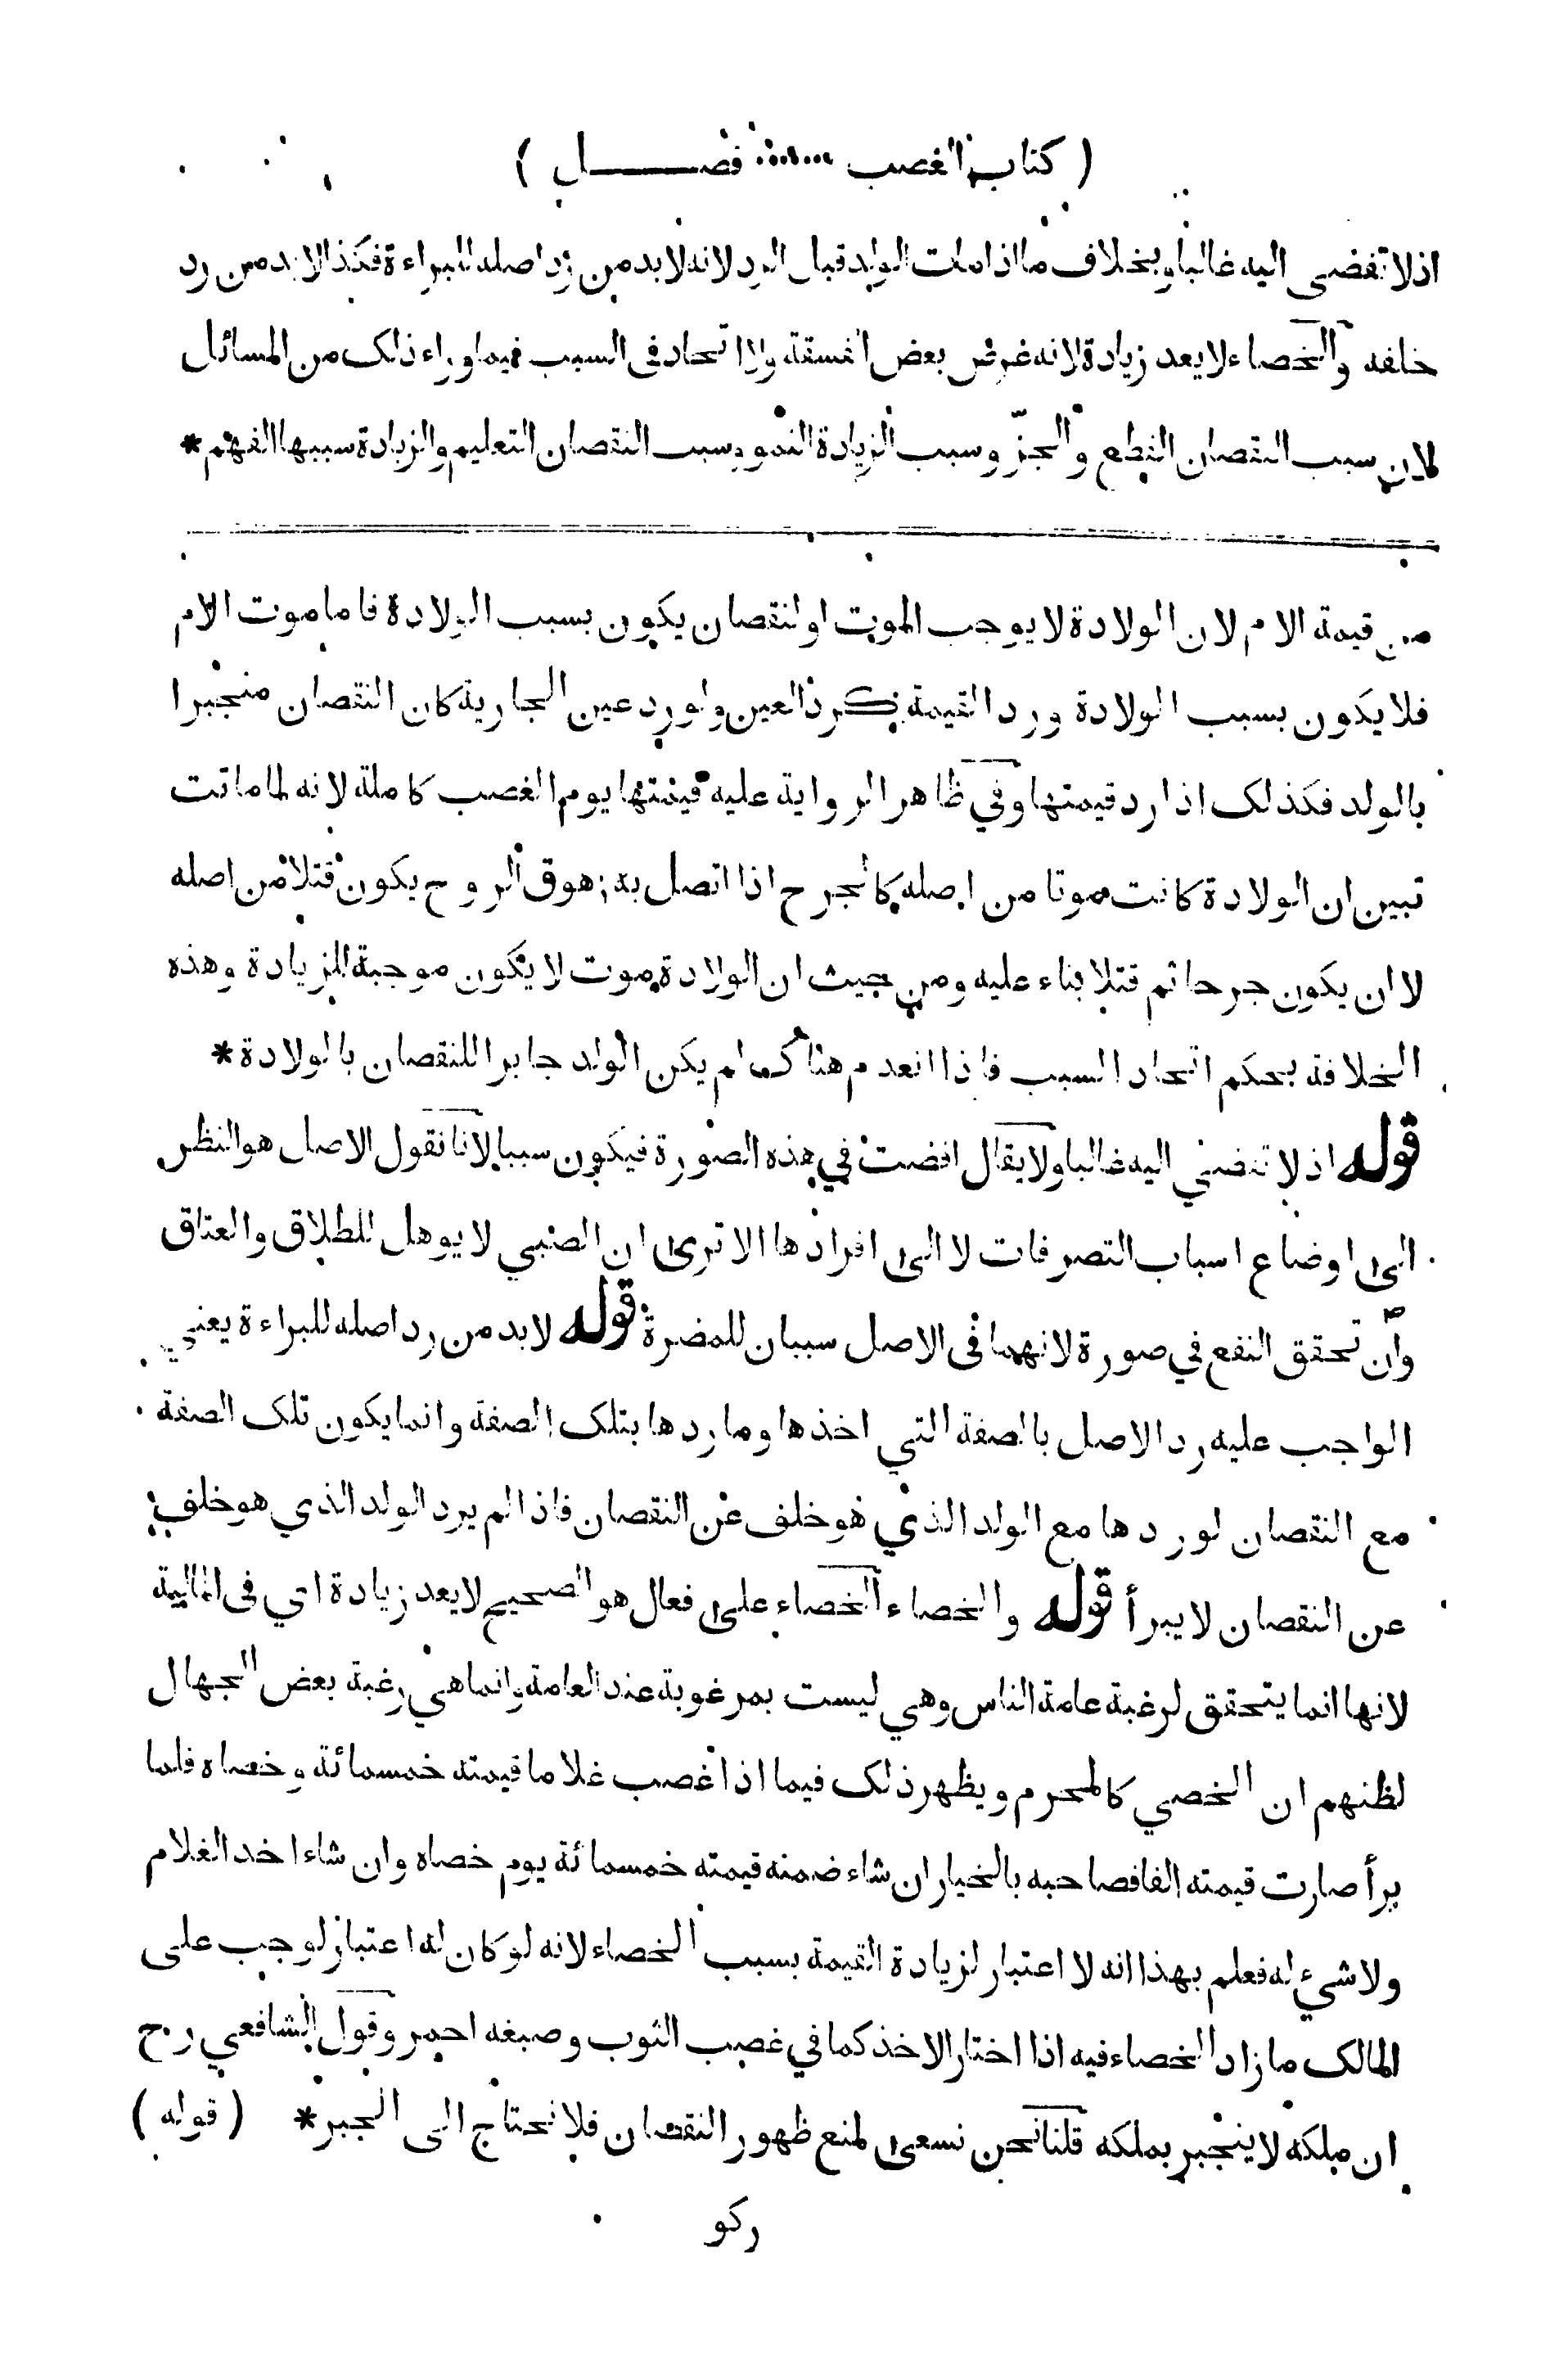 ( كتاب الغصب ...... فصـــل )
اذ لا تفضي اليه غالبا وبخلاف ما اذا مات الولد قبل الرد لانه لا بد من رد اصله للبراءة فكذا لا بد من رد
خلفه والخصاء لا يعد زيادة لانه غرض بعض الفسقة ولا اتحاد في السبب فيما وراء ذلك من المسائل
لان سبب النقصان القطع والجزّ وسبب الزيادة النمو وسبب النقصان التعليم والزيادة سببها الفهم *
من قيمة الام لان الولادة لا يوجب الموت او لنقصان يكون بسبب الولادة فاما موت الام
فلا يكون بسبب الولادة ورد القيمة كرد العين ولو رد عين الجارية كان النقصان منجبرا
بالولد فكذلك اذا رد قيمتها وفي ظاهر الرواية عليه قيمتها يوم الغصب كاملة لانه لما ماتت
تبين ان الولادة كانت موتا من اصله كالجرح اذا اتصل به زهوق الروح يكون قتلا من اصله
لا ان يكون جرحا ثم قتلا بناء عليه ومن حيث ان الولادة موت لا يكون موجبة للزيادة وهذه
الخلافة بحكم اتحاد السبب فاذا انعدم هناك لم يكن الولد جابرا للنقصان بالولادة *
قوله اذ لا تفضي اليه غالبا ولا يقال افضت في هذه الصورة فيكون سببا لانا نقول الاصل هو النظر
الى اوضاع اسباب التصرفات لا الى افرادها الا ترى ان الصبي لا يوهل للطلاق والعتاق
وان تحقق النفع في صورة لانهما في الاصل سببان للمضرة قوله لا بد من رد اصله للبراءة يعني
الواجب عليه رد الاصل بالصفة التي اخذها وما ردها بتلك الصفة وانما يكون تلك الصفة
مع النقصان لو ردها مع الولد الذي هو خلف عن النقصان فاذا لم يرد الولد الذي هو خلف
عن النقصان لا يبرأ قوله والخصاء الخصاء على فعال هو الصحيح لا يعد زيادة اي في المالية
لانها انما يتحقق لرغبة عامة الناس وهي ليست بمرغوبة عند العامة وانما هي رغبة بعض الجهال
لظنهم ان الخصي كالمحرم ويظهر ذلك فيما اذا غصب غلاما قيمته خمسمائة وخصاه فلما
برأ صارت قيمته الفا فصاحبه بالخيار ان شاء ضمنه قيمته خمسمائة يوم خصاه وان شاء اخد الغلام
ولا شيء له فعلم بهذا انه لا اعتبار لزيادة القيمة بسبب الخصاء لانه لو كان له اعتبار لوجب على
المالك ما زاد الخصاء فيه اذا اختار الاخذ كما في غصب الثوب وصبغه احمر وقول الشافعي رح
ان ملكه لا ينجبر بملكه قلنا نحن نسعى لمنع ظهور النقصان فلا نحتاج الى الجبر * ( قوله )